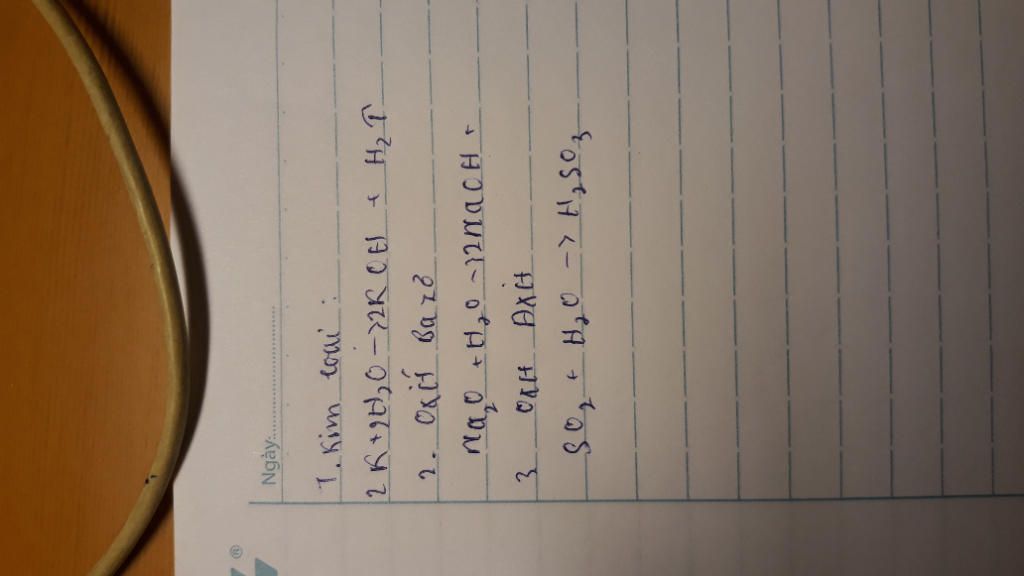 Ngày:
1. Kim loại:
2K + 2H₂O -> 2KOH + H₂↑
2. Oxit Bazơ
Na₂O + H₂O -> 2NaOH +
3 Oxit Axit
SO₂ + H₂O -> H₂SO₃
®